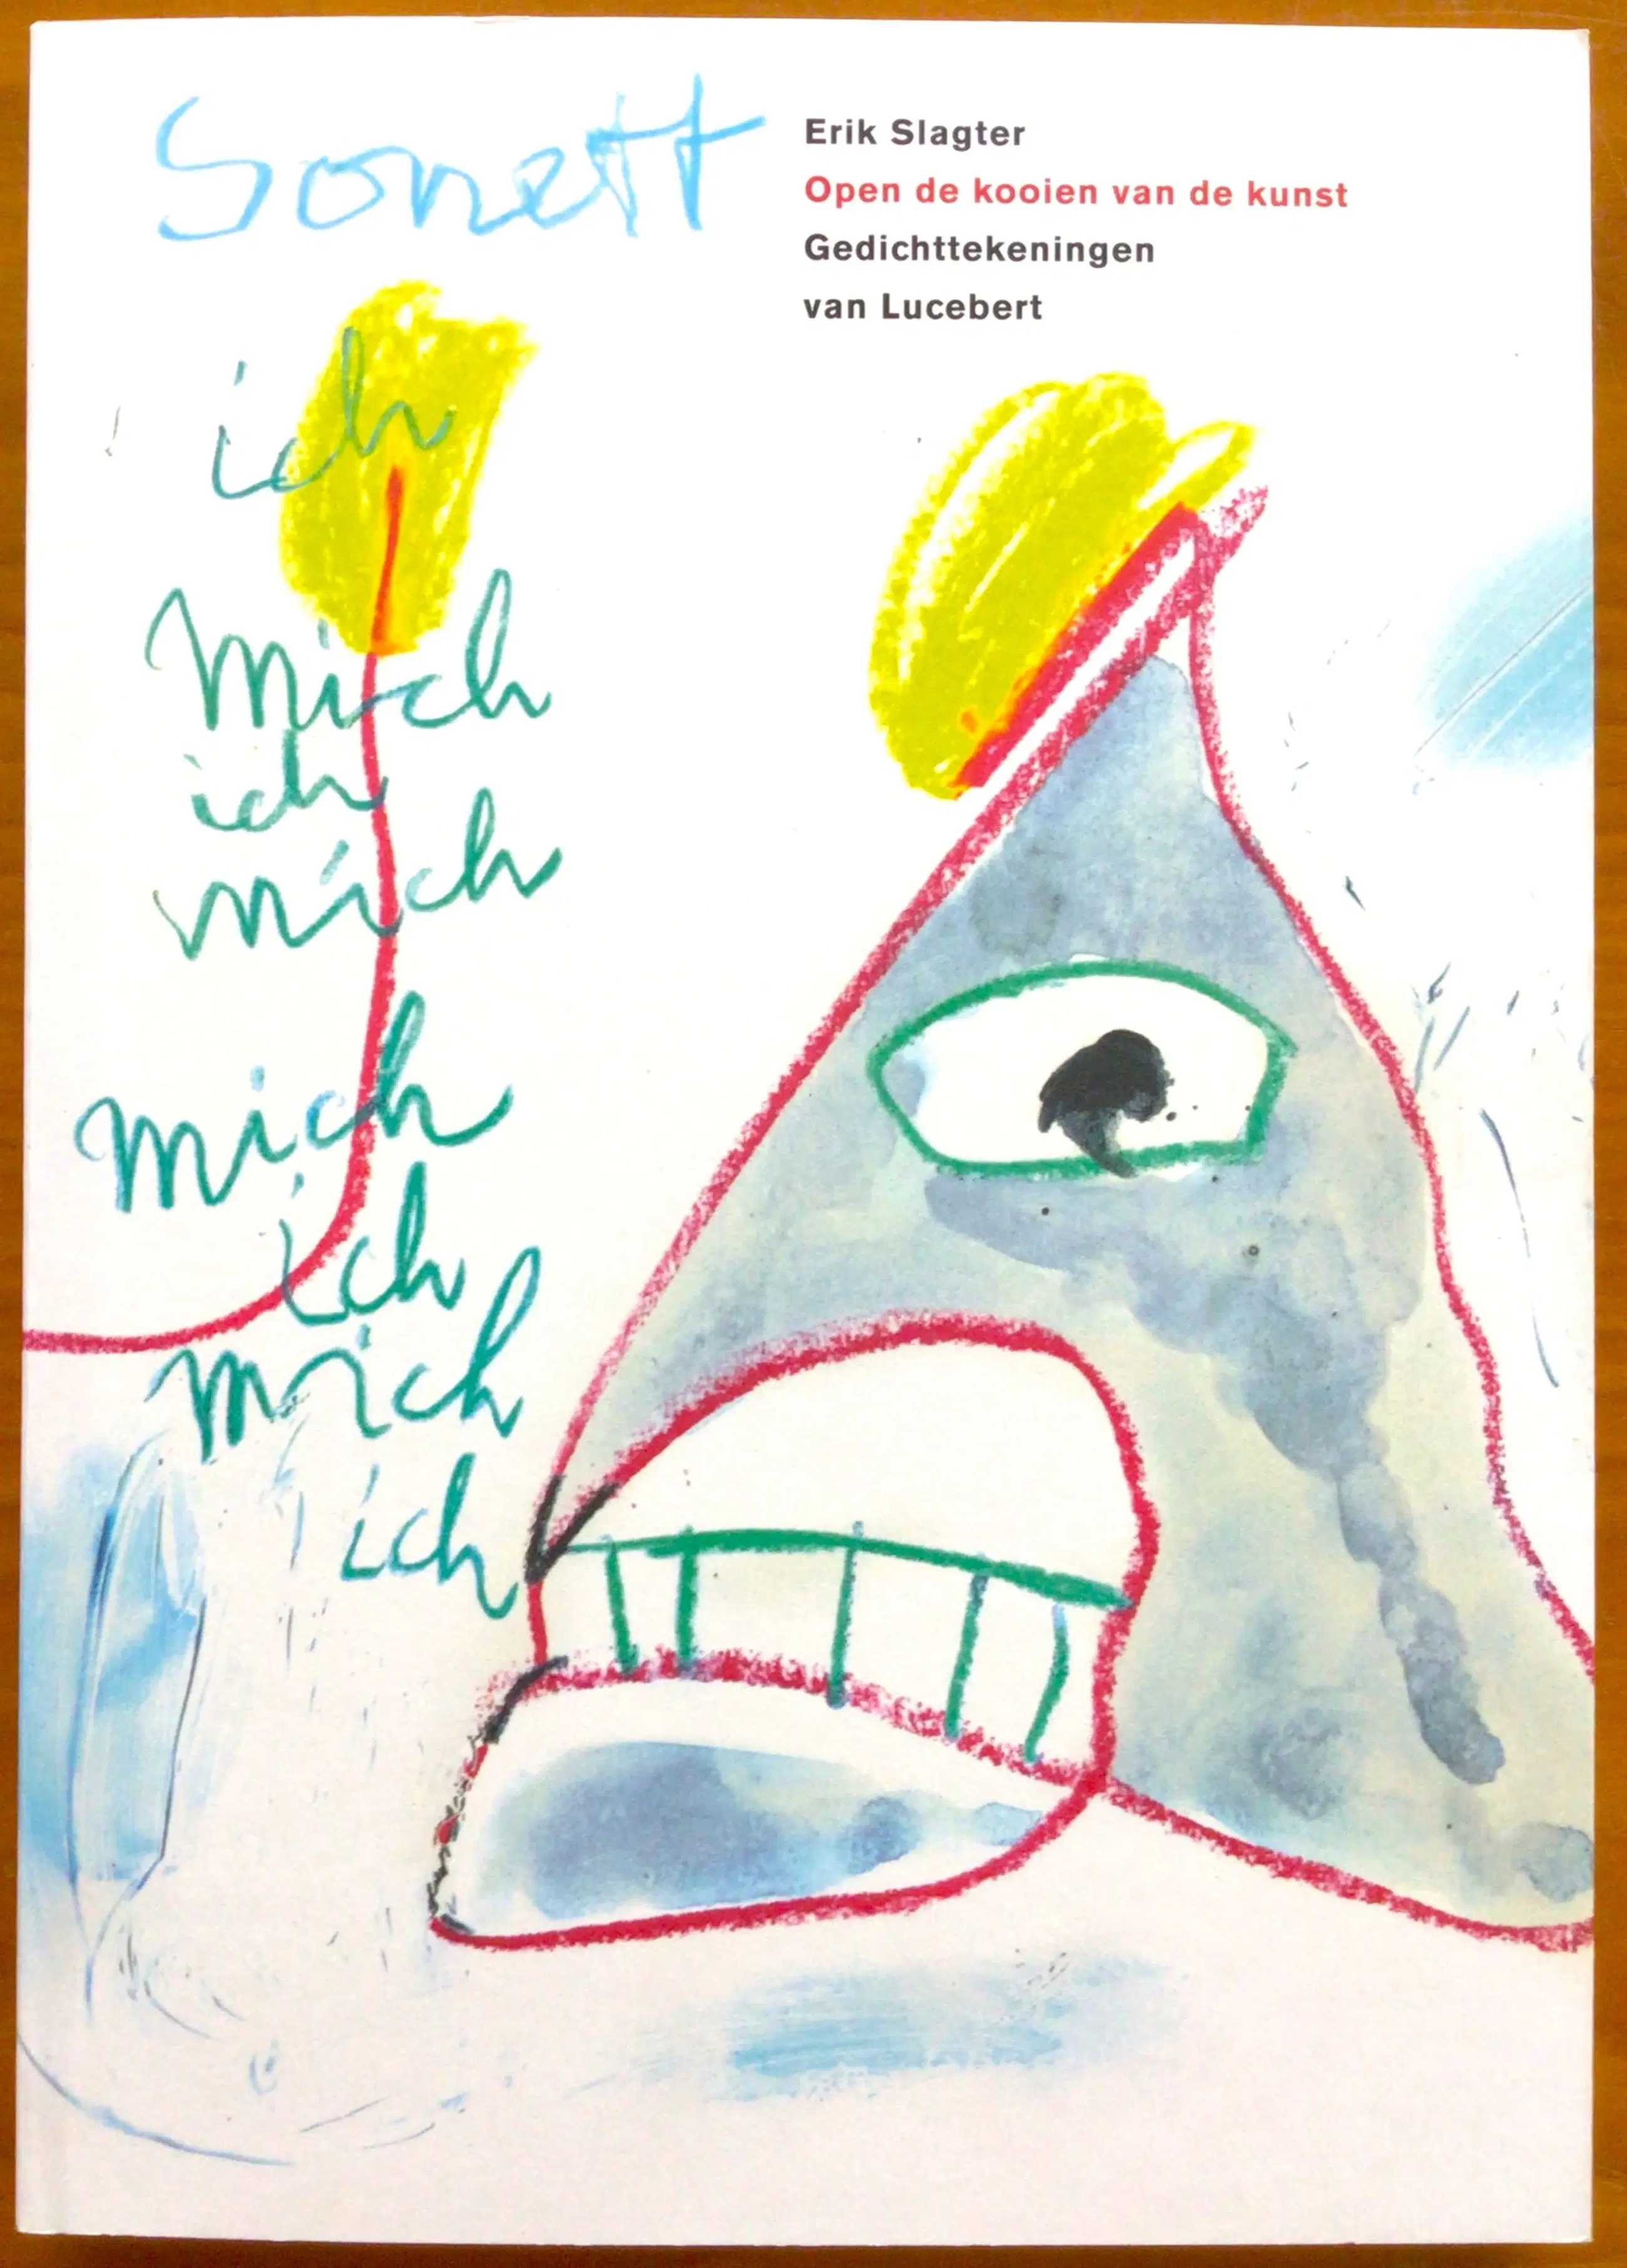 Sonett
Erik Slagter
Open de kooien van de kunst
Gedichttekeningen
van Lucebert
ich
mich
ich
mich
mich
ich
mich
ich